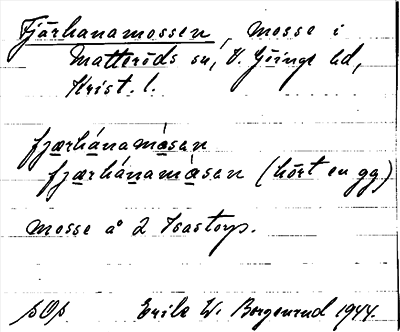 Fjärhanamossen, mosse i
Matteröds sn, V. Göinge hd,
Krist. l.
fjærhánamåsan
fjærhánamåsan (hört en gg)
Mosse å 2 Isastorp.
sOs Erik W. Borgenrud 1944.